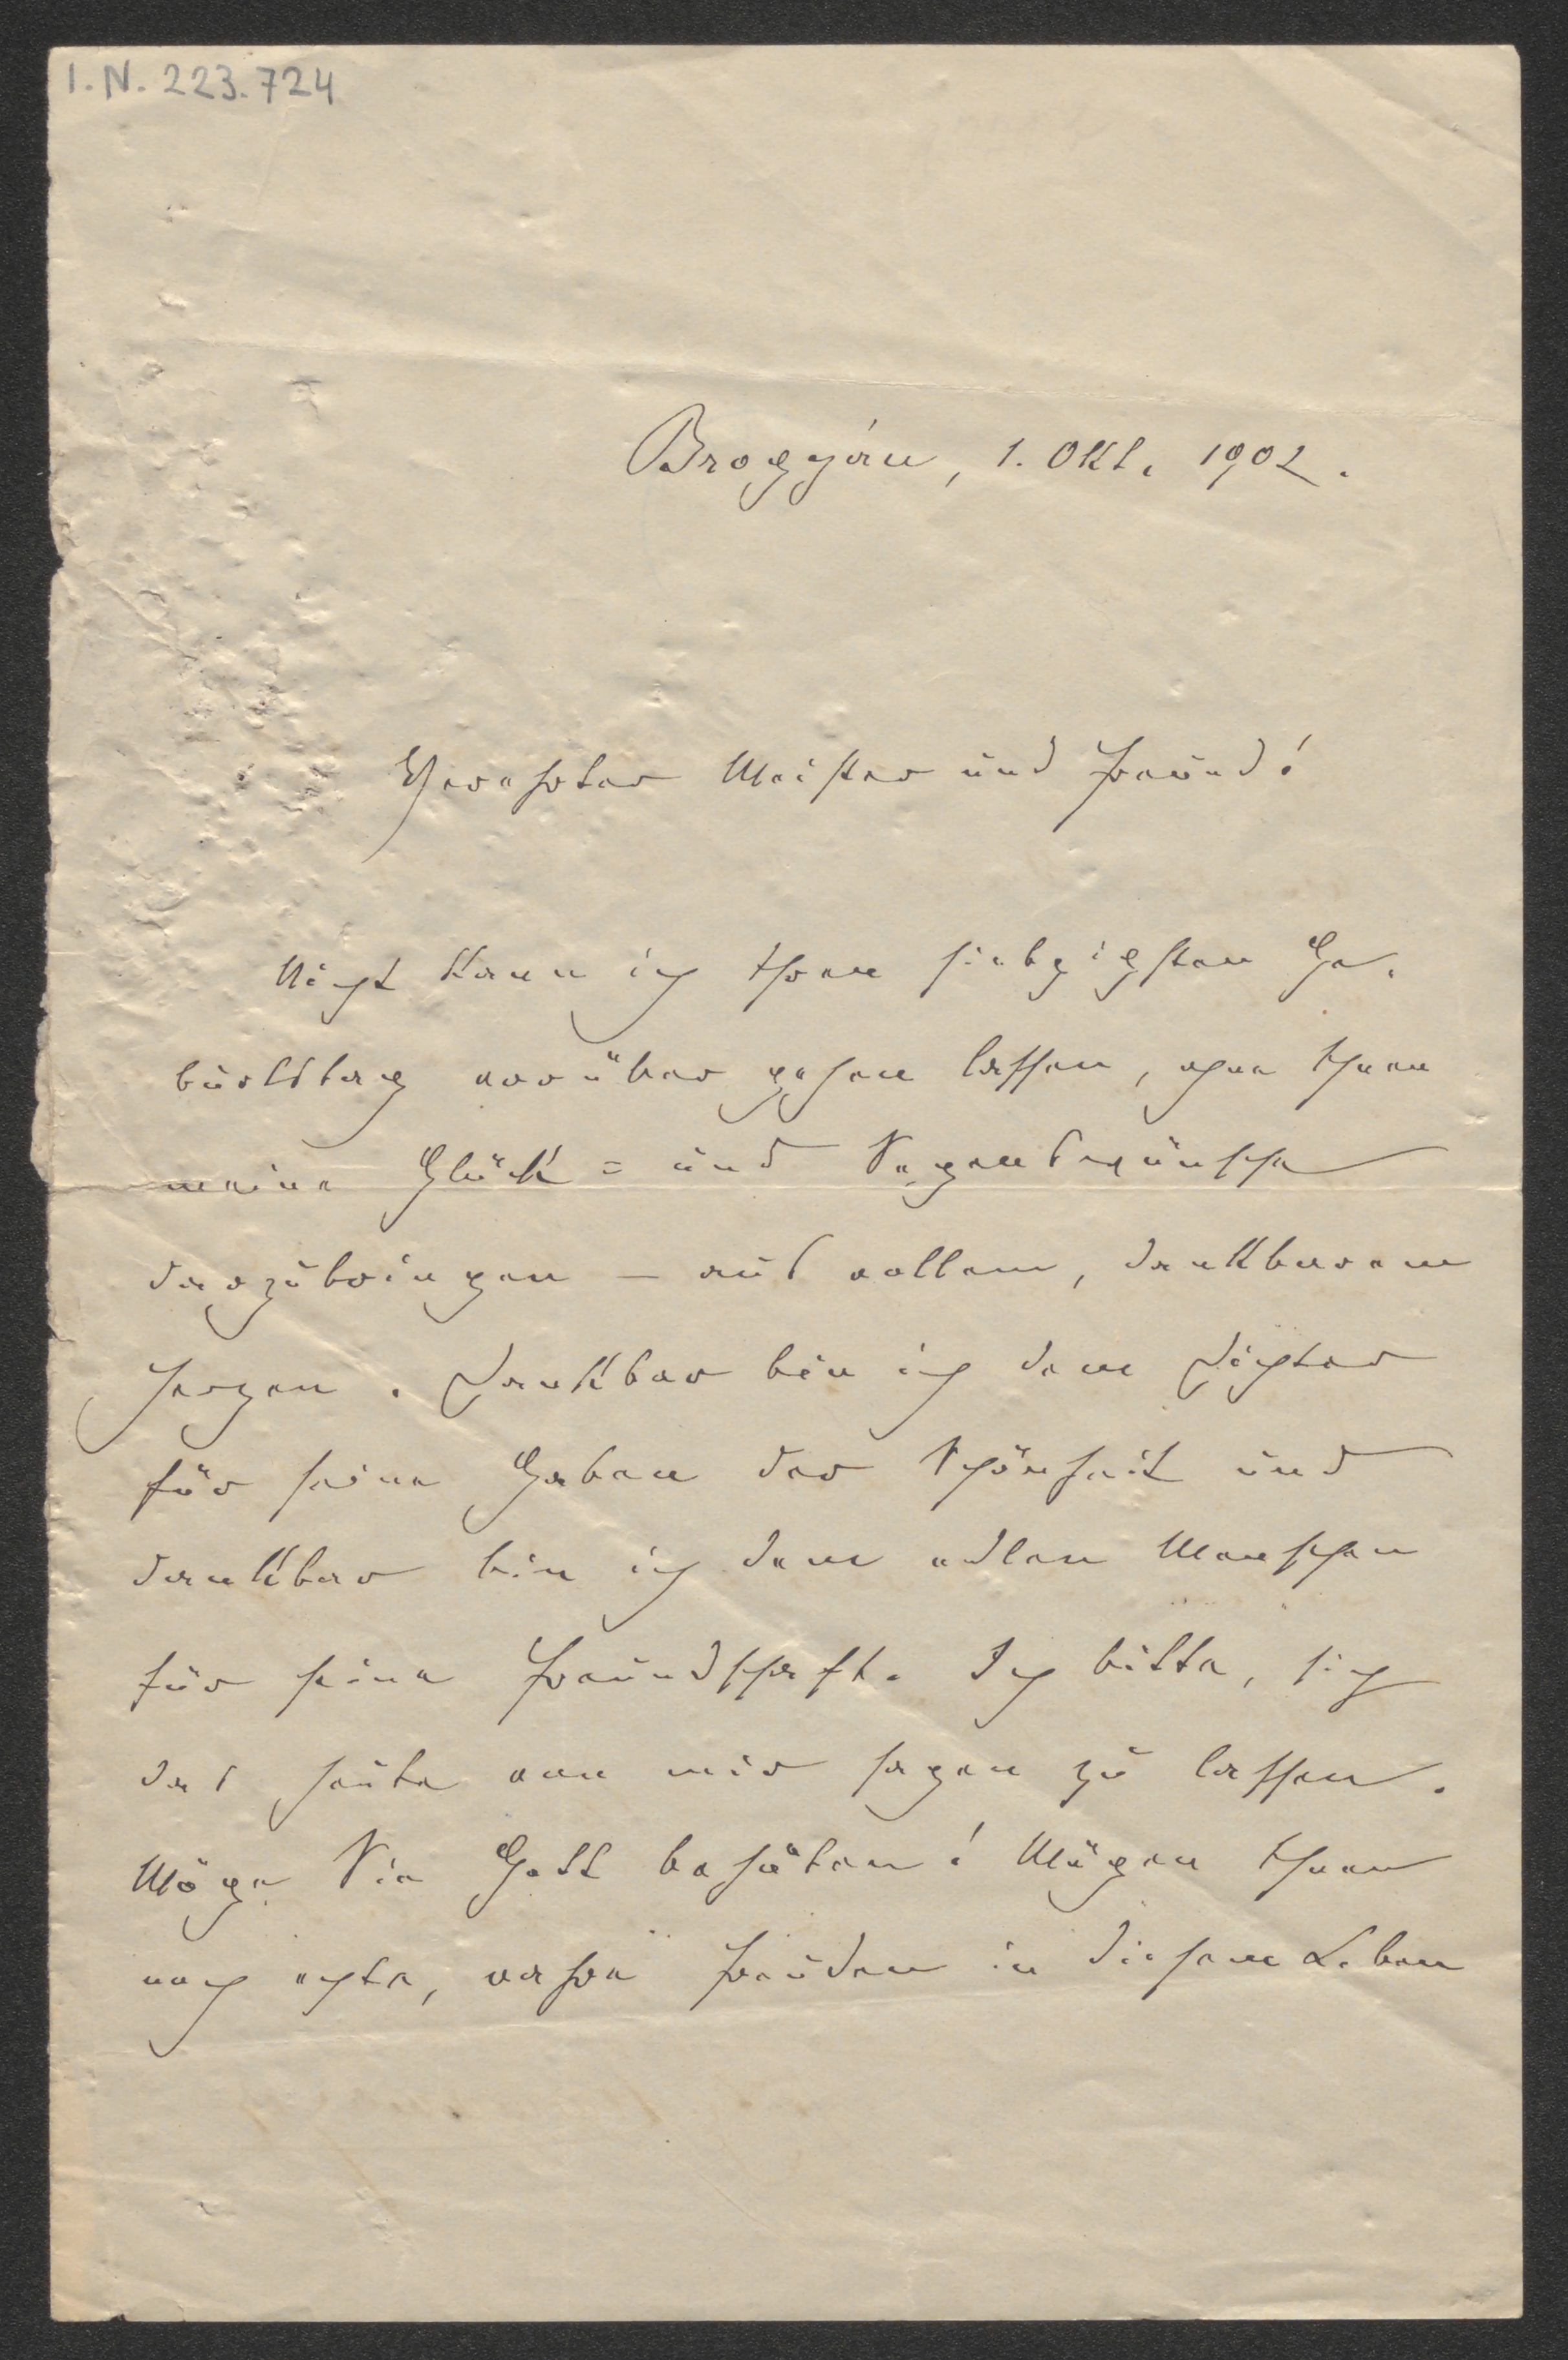 I.N. 223.724
Brogyán, 1. Okt. 1902.
Verehrter Meister und Freund!
Nicht kann ich Ihren siebzigsten Ge-
burtstag vorüber gehen lassen, ohne Ihnen
meine Glück= und Segenswünsche
darzubringen – aus vollem, dankbarem
Herzen. Dankbar bin ich dem Dichter
für seine Gaben der Schönheit und
dankbar bin ich dem edlen Menschen
für seine Freundschaft. Ich bitte, sich
das heute von mir sagen zu lassen.
Möge Sie Gott behüten! Mögen Ihnen
noch echte, wahre Freuden in diesem Leben